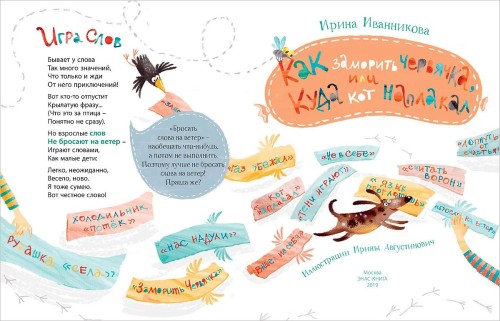 Игра слов
Бывает у слова
Так много значений,
Что только и жди
От него приключений!
Вот кто-то отпустит
Крылатую фразу...
(Что это за птица –
Понятно не сразу).
Но взрослые слов
Не бросают на ветер –
Играют словами,
Как малые дети:
Легко, неожиданно,
Весело, ново,
Я тоже сумею.
Вот честное слово!
«Бросать
слова на ветер» –
наобещать что-нибудь,
а потом не выполнять.
Поэтому лучше не бросать
слова на ветер!
Правда же?
холодильник
«потёк»
рубашка «села»
«нас надули»
«Заморить червячка»
Ирина Иванникова
Как заморить червячка,
или
Куда кот наплакал
«не в себе»
«считать
ворон»
«лопнуть
от счастья»
убежали»
«кот
наплакал»
«тени играют»
«язык
проглотишь»
Иллюстрации Ирины Августинович
Москва
2019